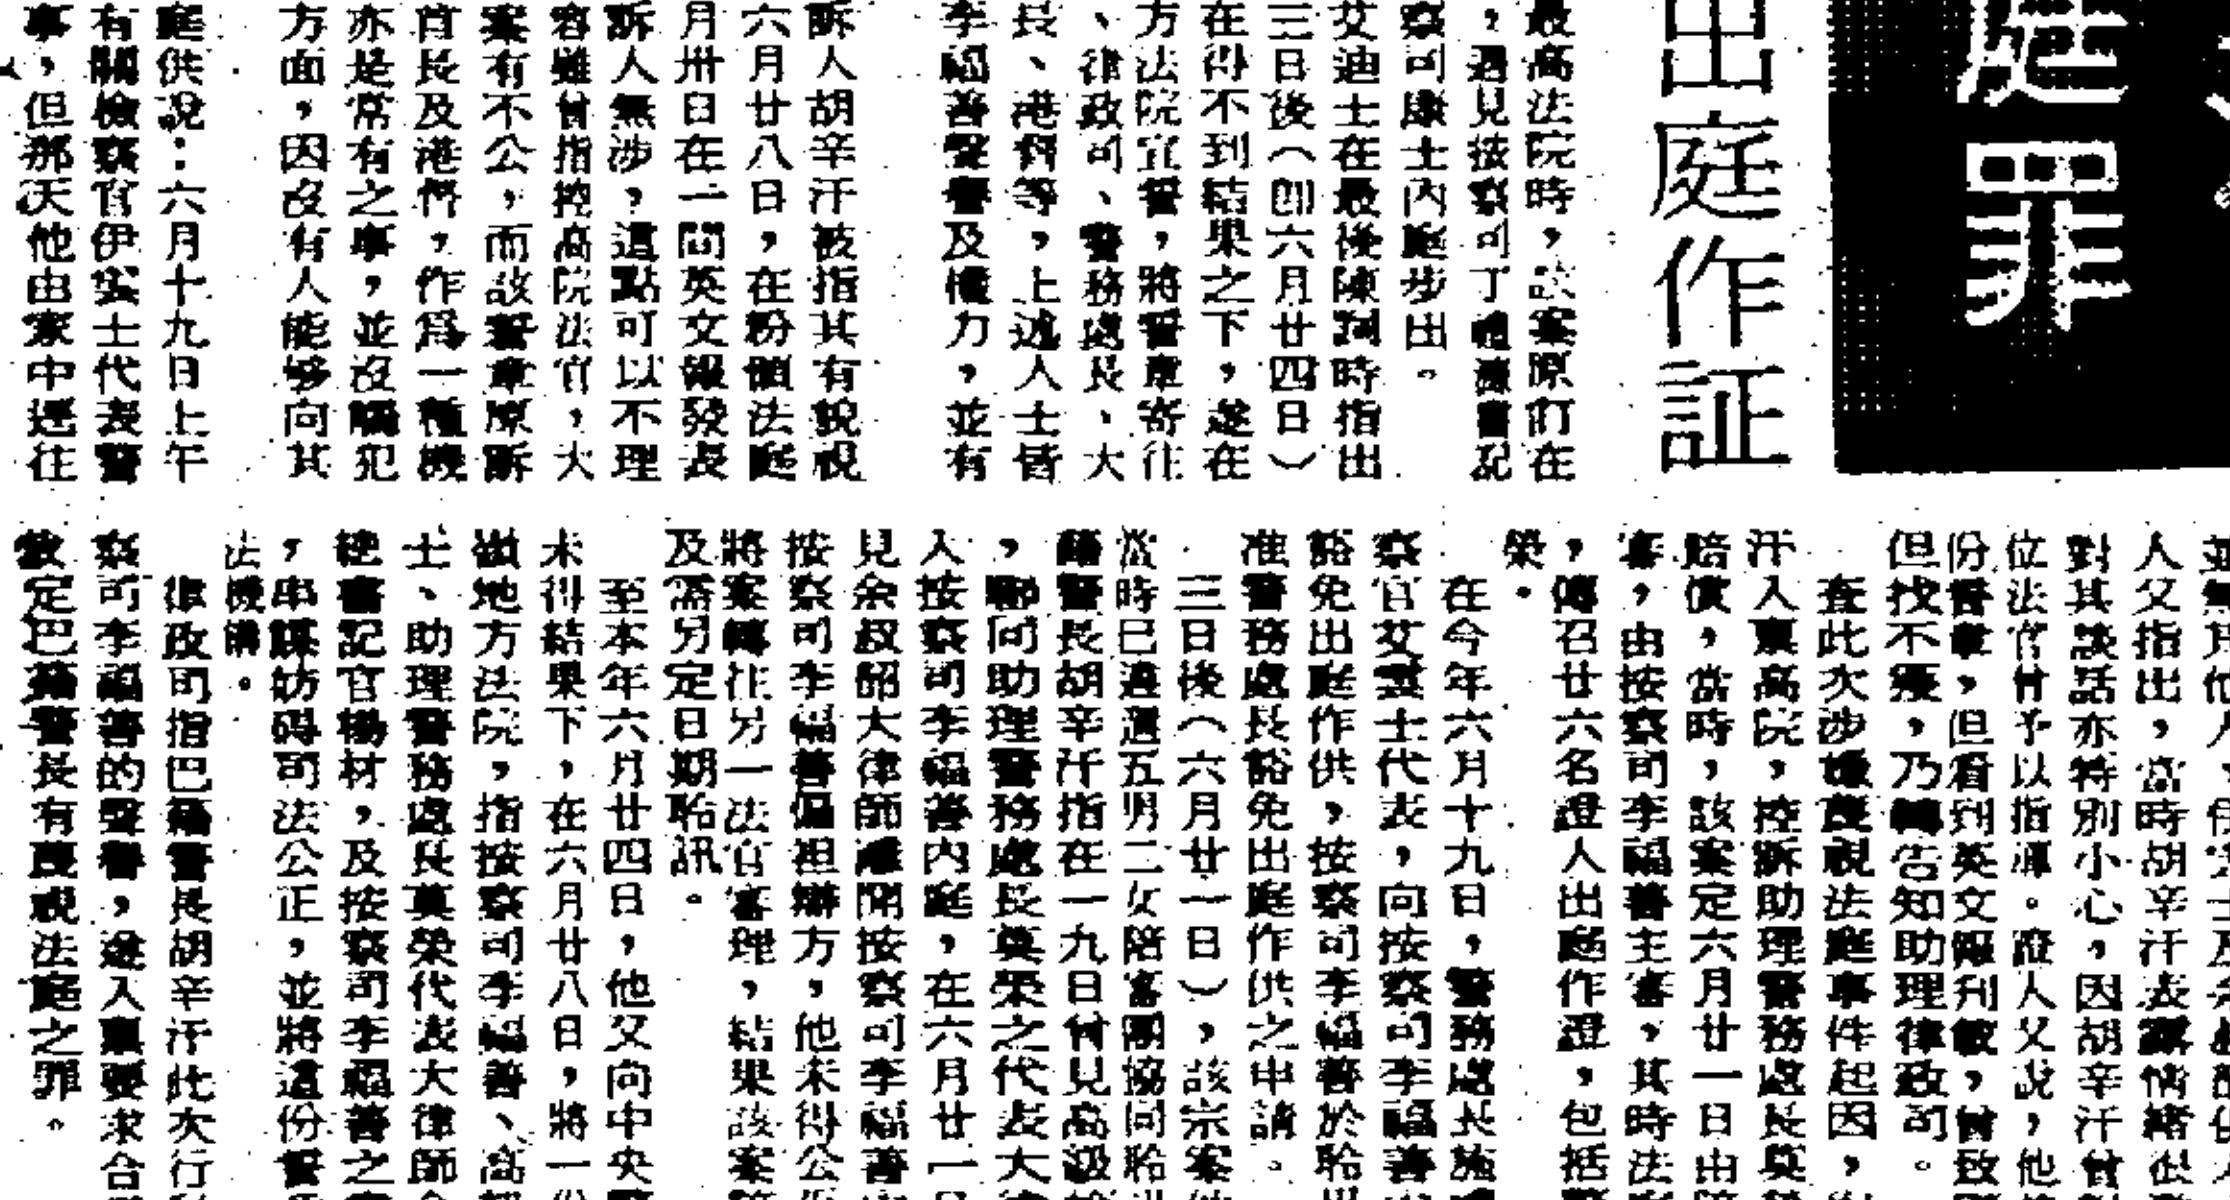 庭罪
出庭作証
最高法院時，該案原訂在
，遇見按察司丁
察司康士內庭步出。
艾迪士在最後陳詞時指出
三日後（即六月廿四日）
在得不到結果之下，遂在
方法院宣誓，將誓章寄往
、律政司、警務處長、大
長、港督等，上述人士皆
李福善聲譽及權力，並有
訴人胡辛汗被指其有藐視
六月廿八日，在粉嶺法庭
月卅日在一間英文報發表
訴人無涉，這點可以不理
容雖曾指控高院法官，大
案有不公，而該誓章原訴
首長及港督，作為一種機
亦是常有之事，並沒觸犯
方面，因沒有人能够向其
庭供說：六月十九日上午
有關檢察官伊雲士代表警
事，但那天他由家中趕往
人又指出，當時胡辛汗表露情緒很
對其談話亦特別小心，因胡辛汗曾
位法官曾予以指導。證人又說，他
份誓章，但看到英文報刊載，曾致
但找不獲，乃轉告知助理律政司。
查此次涉嫌蔑視法庭事件起因，
汗入稟高院，控訴助理警務處長莫
賠償，當時，該案定六月廿一日由
審，由按察司李福善主審，其時法
，傳召廿六名證人出庭作證，包括
榮。
在今年六月十九日，警務處長施
察官艾雲士代表，向按察司李福善
豁免出庭作供，按察司李福善於聆
准警務處長豁免出庭作供之申請。
三日後（六月廿一日），該宗案
當時已遴選五男二女陪審團協同聆
籍警長胡辛汗指在一九日曾見高級
，聯同助理警務處長莫榮之代表大
入按察司李福善內庭，在六月廿一
見余叔韶大律師離開按察司李福善
按察司李福善偏袒辯方，他未得公
將案轉往另一法官審理，結果該案
及需另定日期聆訊。
至本年六月廿四日，他又向中央
未得結果下，在六月廿八日，將一份
嶺地方法院，指按察司李福善、高
士、助理警務處長莫榮代表大律師
總書記官楊材，及按察司李福善之
，串謀妨碍司法公正，並將這份誓
法機構。
律政司指巴籍警長胡辛汗此次行
察司李福善的聲譽，遂入稟要求合
裁定巴籍警長有蔑視法庭之罪。